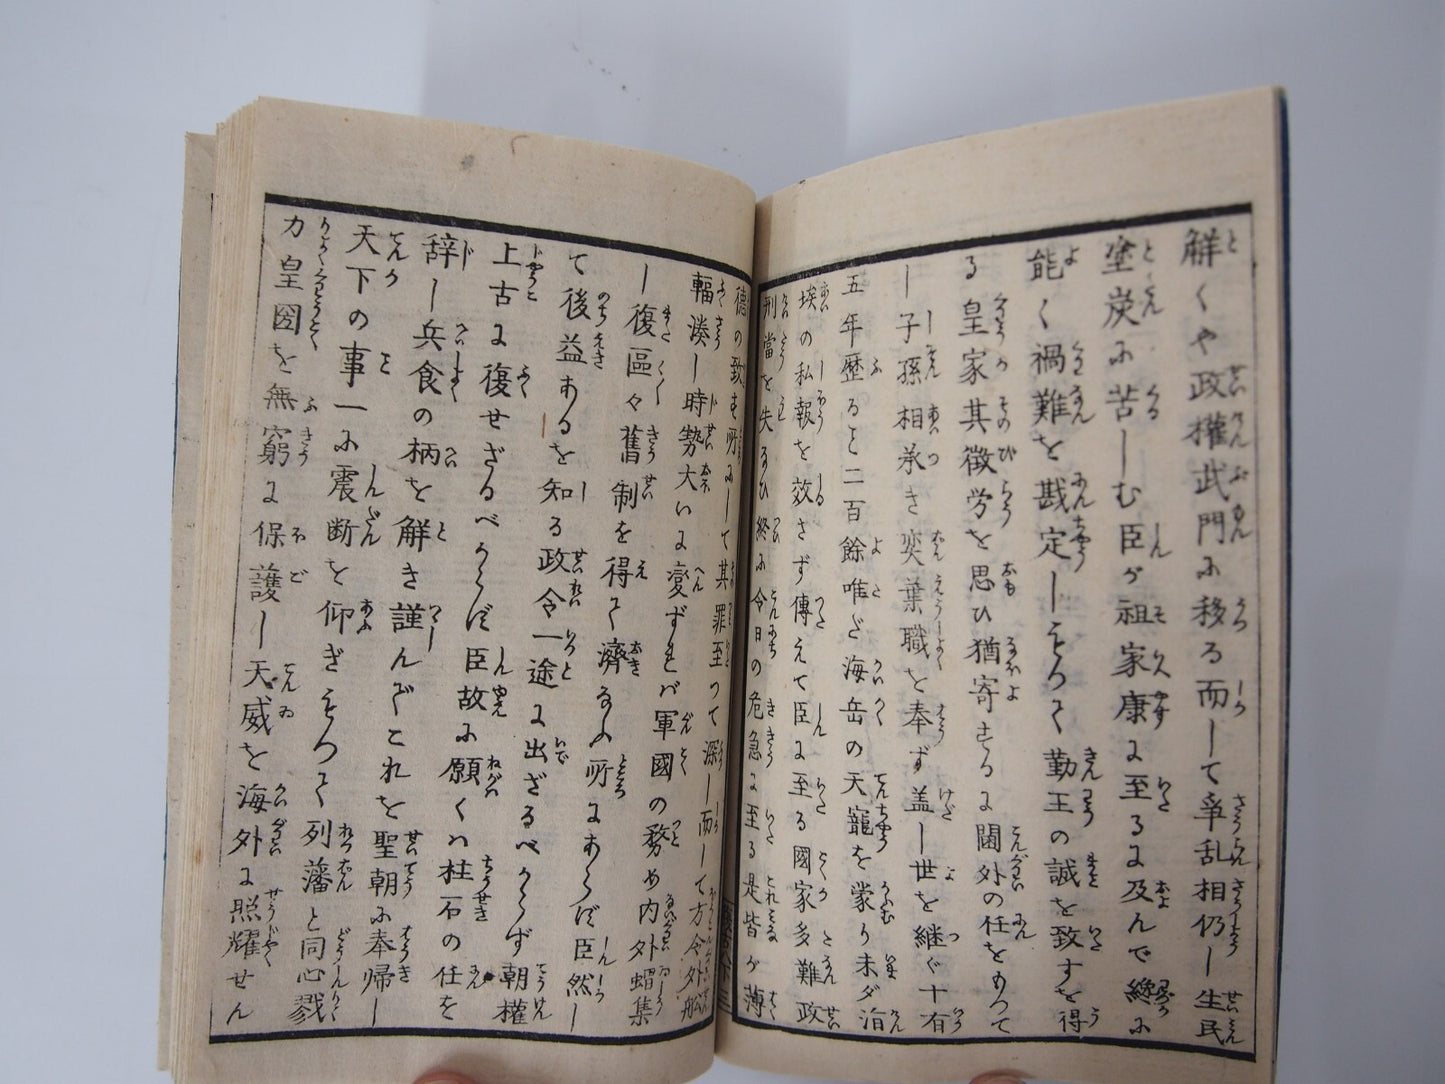 解くや政權武門に移る而して爭乱相仍し生民
塗炭に苦しむ臣が祖家康に至るに及んで纔に
能く禍難を戡定しもつて勤王の誠を致すを得
る皇家其徴労を思ひ猶寄するに閫外の任をもつて
し子孫相承き奕葉職を奉ず盖し世を継ぐ十有
五年歴ると二百餘唯だ海岳の天寵を蒙り未ダ涓
埃の私報を效さず傳えて臣に至る國家多難政
刑當を失なひ終に今日の危急に至る是皆が薄
德の致す所にして其罪至つて深し而して方今外舩
輻湊し時勢大いに変ずれバ軍國の務め内外蝟集
し復區々舊制を得て濟なふ所にあらず臣然し
て後益あるを知る政令一途に出ざるべからず朝權
上古に復せざるべからず臣故に願くハ柱石の任を
辞し兵食の柄を解き謹んでこれを聖朝に奉帰し
天下の事一に震断を仰ぎもつて列藩と同心戮
力皇國を無窮に保護し天威を海外に照耀せん